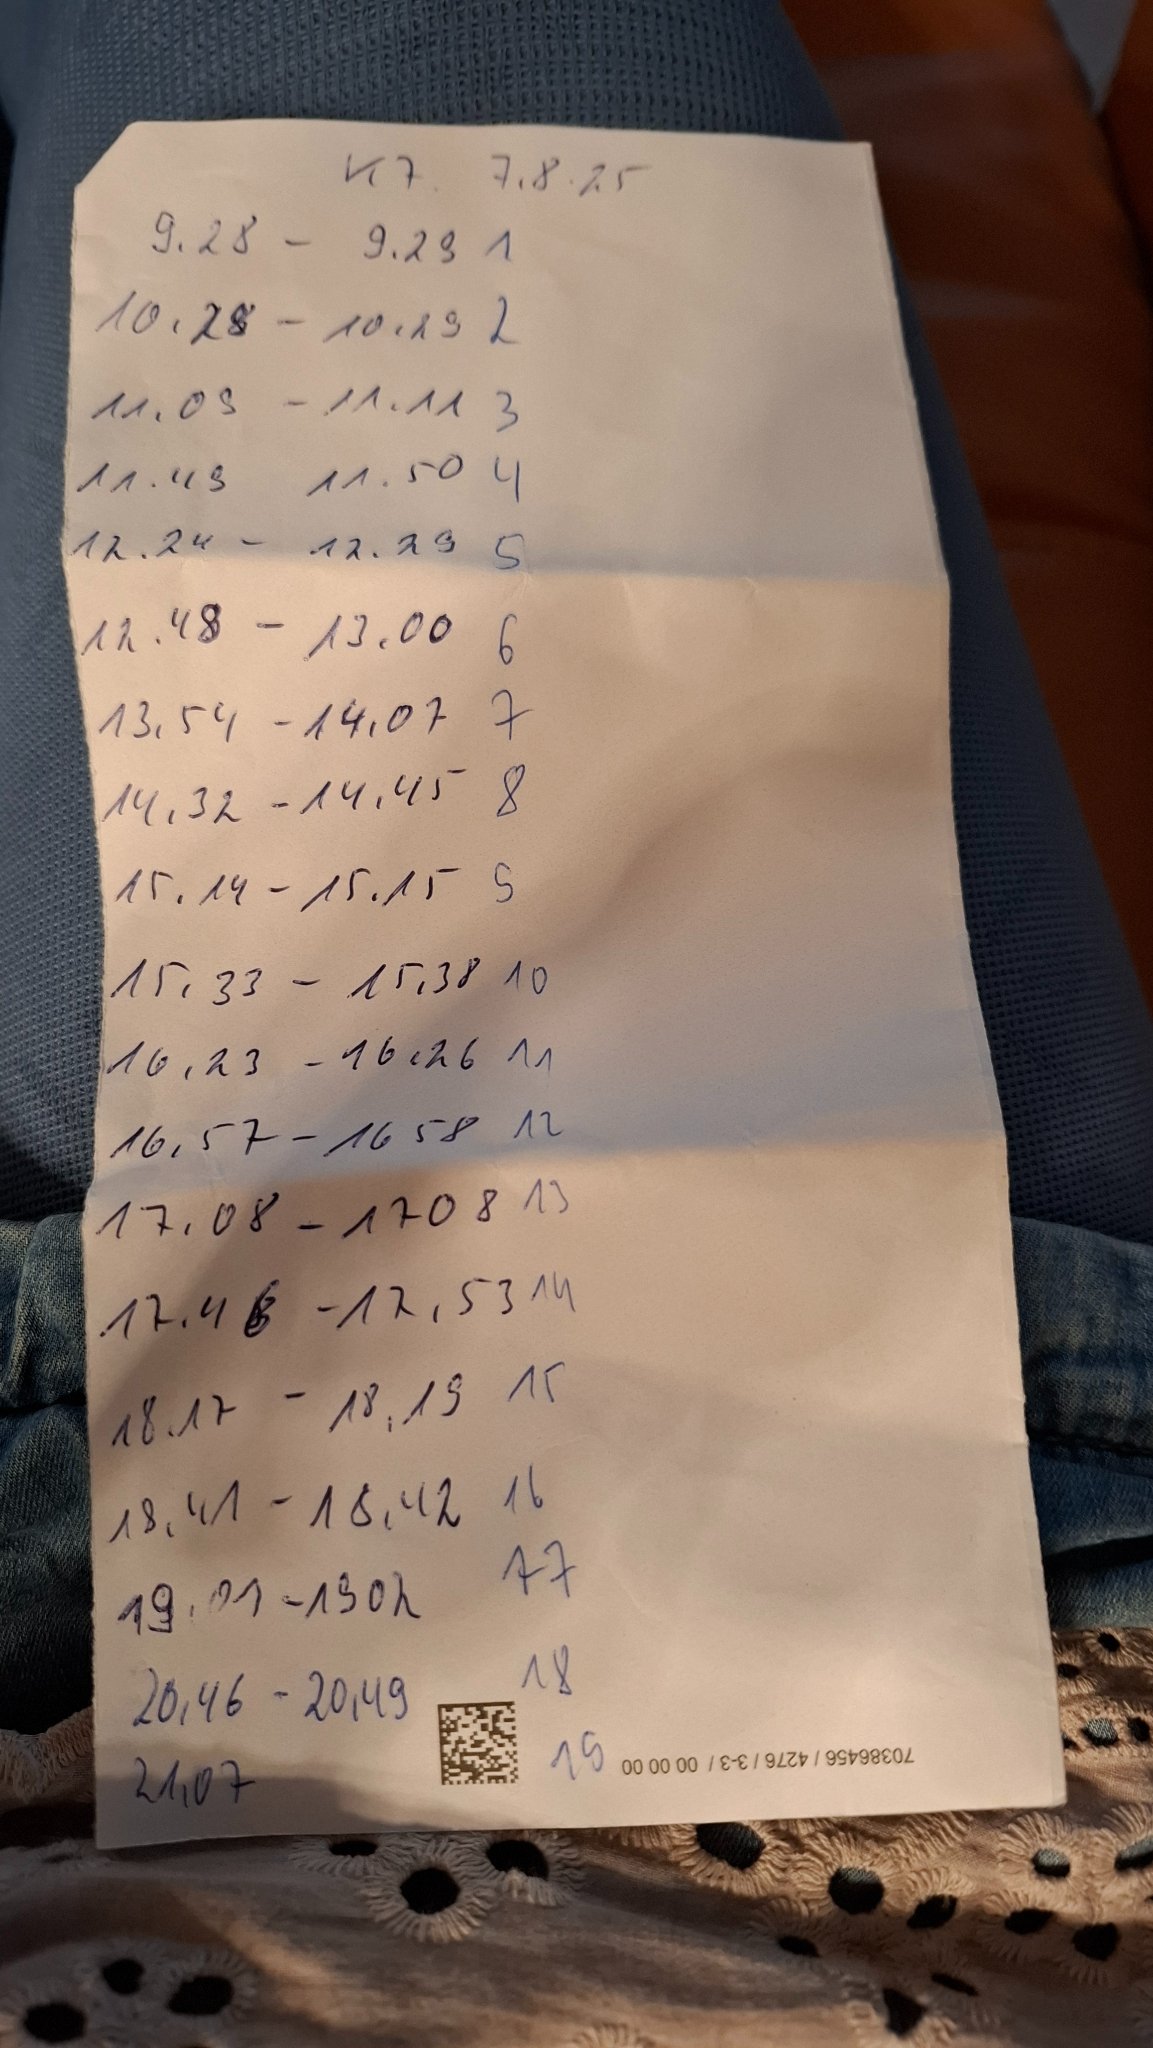 K7. 7.8.25
9.28 - 9.29 1
10.28 - 10.29 2
11.09 - 11.11 3
11.49 11.50 4
12.24 - 12.29 5
12.48 - 13.00 6
13.54 - 14.07 7
14.32 - 14.45 8
15.14 - 15.15 9
15.33 - 15.38 10
16.23 - 16.26 11
16.57 - 16 58 12
17.08 - 1708 13
17.46 - 17.53 14
18.17 - 18.19 15
18.41 - 18.42 16
19.01 - 1902 17
20,46 - 20,49 18
21,07 19
70386456 / 4276 / 3-3 / 00 00 00